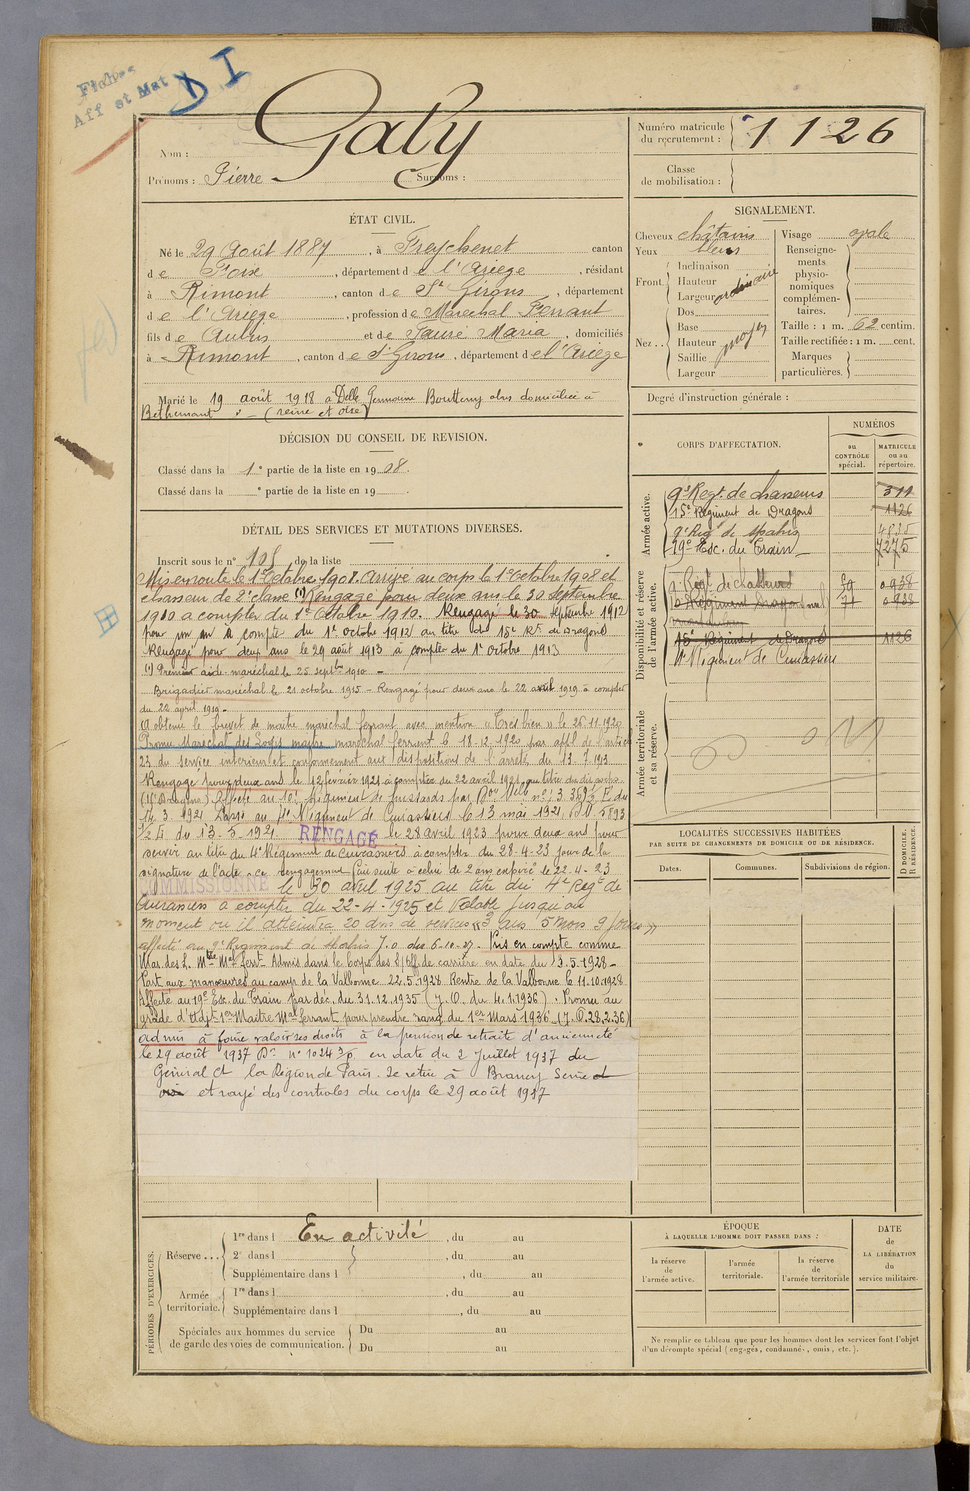 Fiches
Aff et Mat
D I
Nom : Galy
Prénoms : Pierre Surnoms :
Numéro matricule du recrutement : 1126
Classe de mobilisation :
ÉTAT CIVIL.
Né le 29 Août 1887, à Freychenet canton
de Foix, département de l'Ariège, résidant
à Rimont, canton de St Girons, département
de l'Ariège, profession de Maréchal Ferrant
fils de et de Fauré Maria, domiciliés
à Rimont, canton de St Girons, département de l'Ariège
Marié le 19 août 1918 à Delle Germaine domiciliée à
Béthemont (seine et oise)
SIGNALEMENT.
Cheveux châtains
Yeux bleus
Front Inclinaison
Hauteur
Largeur ordinaire
Nez Dos
Base
Hauteur moyen
Saillie
Largeur
Visage ovale
Renseignements physionomiques complémentaires.
Taille : 1 m. 62 centim.
Taille rectifiée : 1 m. cent.
Marques particulières.
Degré d'instruction générale :
DÉCISION DU CONSEIL DE REVISION.
Classé dans la 1e partie de la liste en 1908.
Classé dans la e partie de la liste en 19
CORPS D'AFFECTATION.
NUMÉROS
au CONTRÔLE spécial.
MATRICULE ou au répertoire.
Armée active.
9e Regt. de chasseurs 311
15e Régiment de Dragons 1126
9e Reg de Spahis 4835
19e Esc. du Train 7275
Disponibilité et réserve de l'armée active.
15e Régiment de Dragons 1126
4e Régiment de Cuirassiers
Armée territoriale et sa réserve.
DÉTAIL DES SERVICES ET MUTATIONS DIVERSES.
Inscrit sous le n° 105 de la liste
Mis en route le 1er Octobre 1908. Arrivé au corps le 1er Octobre 1908 et
chasseur de 2e classe (1) Rengagé pour deux ans le 30 septembre
1910 à compter du 1er Octobre 1910. Rengagé le 30 septembre 1912
pour un an à compter du 1er octobre 1912 au titre du 15e Rt de Dragons
Rengagé pour deux ans le 29 août 1913 à compter du 1er Octobre 1913
(1) Premier aide-maréchal le 25 septbre 1910 -
Brigadier maréchal le 21 octobre 1915 - Rengagé pour deux ans le 22 avril 1919 à compter
du 22 avril 1919 -
A obtenu le brevet de maître maréchal ferrant avec mention "Très bien" le 26.11.1920
Promu Maréchal des Logis maître maréchal ferrant le 18-12-1920 par appl de l'article
23 du service intérieur et conformément aux dispositions de l'arrêté du 13.7.1913
Rengagé pour deux ans le 12 février 1921 à compter du 22 avril 1921 au titre du dit corps
(15e Dragons) Affecté au 10e Régiment de hussards par n° 3369 du
14.3.1921 Passé au 4e Régiment de Cuirassiers le 13 mai 1921, 5893
du 13.5.1921 RENGAGÉ le 28 avril 1923 pour deux ans pour
servir au titre du 4e Régiment de Cuirassiers à compter du 28-4-23 jour de la
signature de l'acte. Ce rengagement fait suite à celui de 2 ans expiré le 22-4-23
COMMISSIONNÉ le 30 avril 1925 au titre du 4e Regt de
Cuirassiers à compter du 22-4-1925 et valable jusqu'au
moment où il atteindra 20 ans de services "3 ans 5 mois 9 jours"
affecté au 9e Régiment de Spahis J.O. des 6-10-27. Pris en compte comme
Mar. des L. Mtre Mal Ferrt Admis dans le Corps des S/Off de carrière en date du 13.5.1928 -
Part aux manœuvres au camp de la Valbonne 22.5.1928. Rentre de la Valbonne le 11.10.1928
Affecté au 19e Esc. du Train par déc. du 31.12.1935 (J.O. du 4.1.1936). Promu au
grade d'Adjt 1er Maître Mal Ferrant pour prendre rang du 1er Mars 1936 (J.O. 28.2.36)
admis à faire valoir ses droits à la pension de retraite d'ancienneté
le 29 août 1937 Dn n° 10243 en date du 2 Juillet 1937 du
Général Ct la Région de Paris. Se retire à
et rayé des contrôles du corps le 29 août 1937
LOCALITÉS SUCCESSIVES HABITÉES
PAR SUITE DE CHANGEMENTS DE DOMICILE OU DE RÉSIDENCE.
Dates. Communes. Subdivisions de région. D DOMICILE. R RÉSIDENCE.
PÉRIODES D'EXERCICES.
Réserve ... 1re dans l En activité, du au
2e dans l , du au
Supplémentaire dans l , du au
Armée territoriale. 1re dans l , du au
Supplémentaire dans l , du au
Spéciales aux hommes du service de garde des voies de communication. Du au
Du au
ÉPOQUE
À LAQUELLE L'HOMME DOIT PASSER DANS :
la réserve de l'armée active.
l'armée territoriale.
la réserve de l'armée territoriale
DATE DE LA LIBÉRATION du service militaire.
Ne remplir ce tableau que pour les hommes dont les services font l'objet
d'un décompte spécial (engagés, condamnés, omis, etc.).